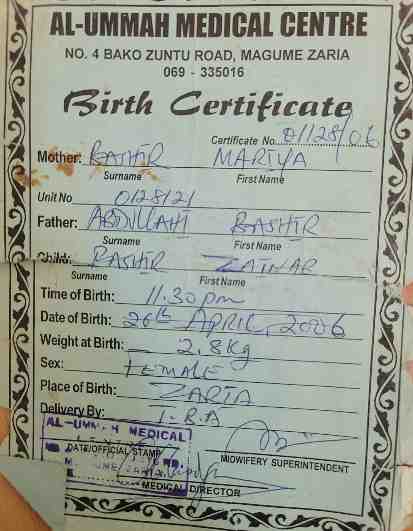 AL-UMMAH MEDICAL CENTRE
NO. 4 BAKO ZUNTU ROAD, MAGUME ZARIA
069 - 335016
Birth Certificate
Certificate No. 01128/06
Mother: BASHIR MARIYA
Surname First Name
Unit No 0128121
Father: ABDULLAHI BASHIR
Surname First Name
Child: BASHIR ZAINAB
Surname First Name
Time of Birth: 11.30pm
Date of Birth: 26th APRIL, 2006
Weight at Birth: 2.8Kg
Sex: FEMALE
Place of Birth: ZARIA
Delivery By: I-B.A
AL-UMMAH MEDICAL
DATE/OFFICIAL STAMP
MIDWIFERY SUPERINTENDENT
MEDICAL DIRECTOR